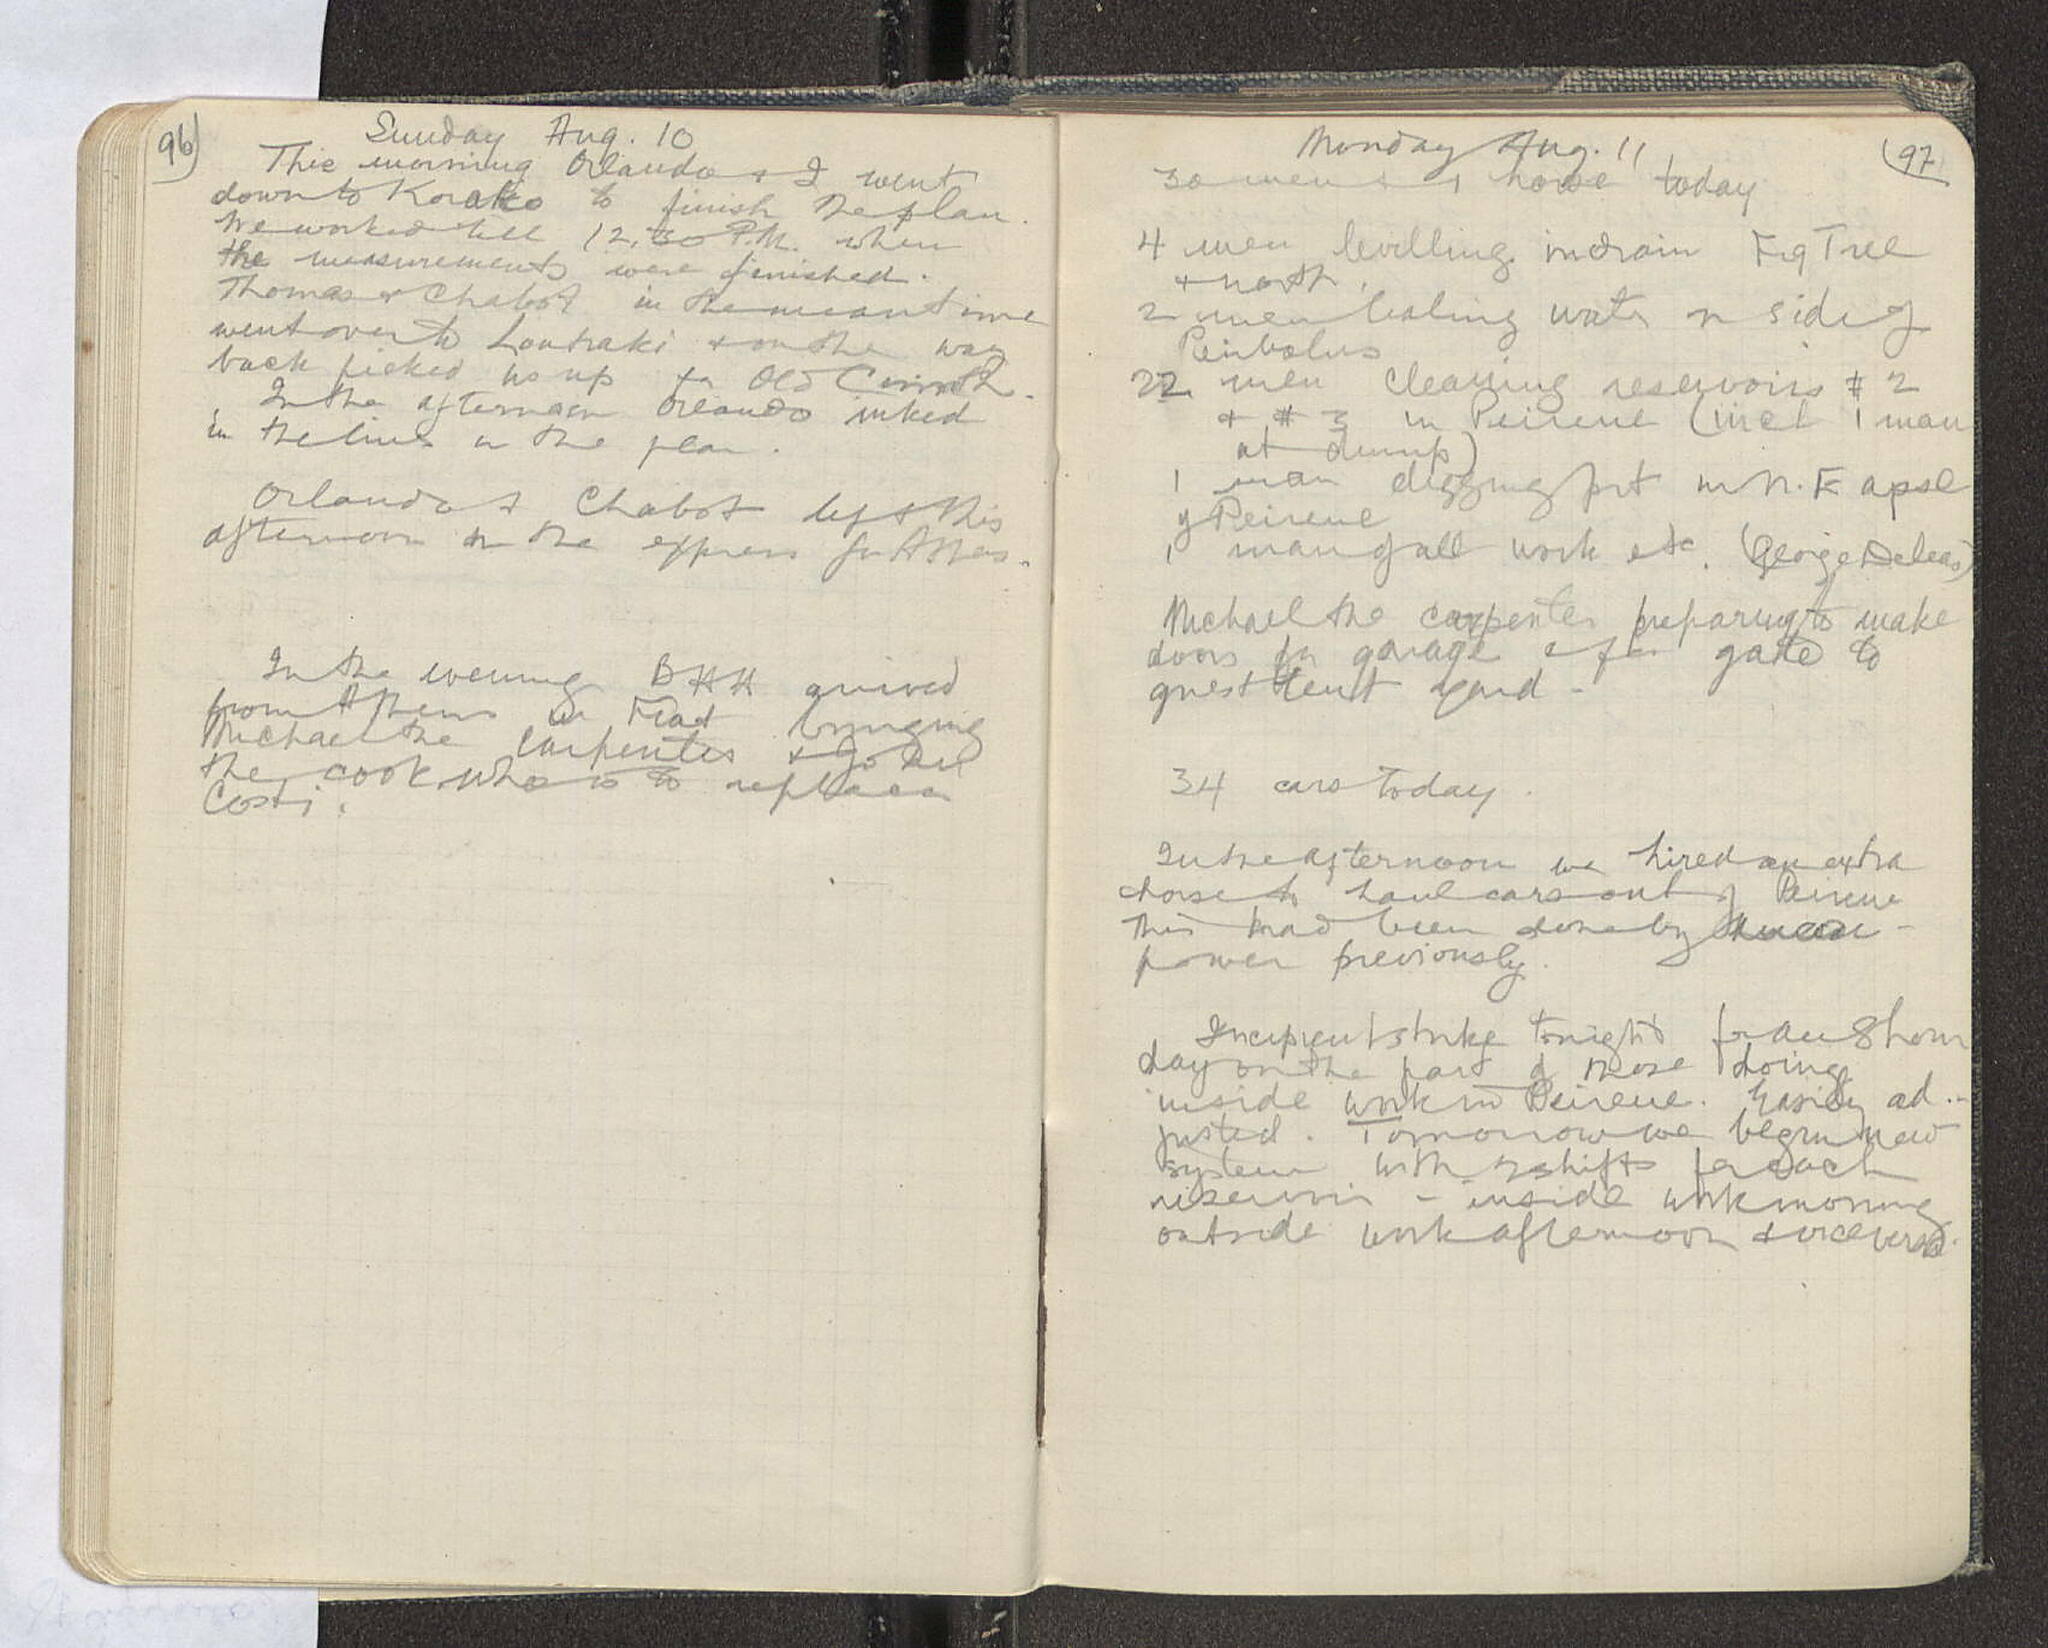 96)
Sunday Aug. 10
This morning Orlando + I went
down to Korakο to finish the plan.
We worked till 12.30 P.M. when
the measurements were finished.
Thomas + Chabot in the meantime
went over to Loutraki + on the way
back picked us up for Old Corinth.
In the afternoon Orlando inked
in the lines on the plan.
Orlando + Chabot left this
afternoon on the express for Athens.
In the evening BHH arrived
from Athens in Fiat bringing
Michael the carpenter +
the cook who is to replace
Costi.
(97
Monday Aug. 11
30 men + 1 horse today
4 men levelling in drain Fig Tree
+ north.
2 men bailing water on side of
Peribolus
22 men cleaning reservoirs #2
+ #3 in Peirene (incl 1 man
at dump)
1 man digging pit in N.E apse
of Peirene
1 man of all work etc. (George Deleas)
Michael the carpenter preparing to make
doors for garage + for gate to
guest tent yard -
34 cars today.
In the afternoon we hired an extra
horse to haul cars out of Peirene
This had been done by
power previously.
Incipient strike tonight for an 8 hour
day on the part of those doing
inside work in Peirene. Easily ad-
justed. Tomorrow we begin new
system with 2 shifts for each
reservoir - inside work morning
outside work afternoon + vice versa.